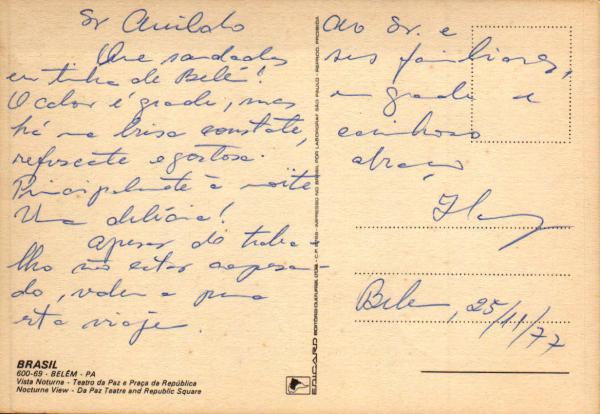 Sr Anildo
Que saudades
eu tinha de Belém!
O calor é grande, mas
há uma brisa constante,
refrescante e gostosa.
Principalmente à noite
Uma delícia!
Apesar do traba-
lho não estar compensan-
do, valeu a pena
esta viagem.
BRASIL
600-69 - BELÉM - PA
Vista Noturna - Teatro da Paz e Praça da República
Nocturne View - Da Paz Teatre and Republic Square
EDICARD EDITORA CULTURAL LTDA. - IMPRESSO NO BRASIL POR LABORGRAF SÃO PAULO - REPROD. PROIBIDA
Ao Sr. e
seus familiares,
um grande e
carinhoso
abraço
Belém, 25/11/77